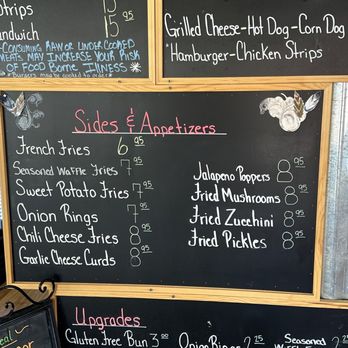 Strips 15
Sandwich 15 95
*CONSUMING RAW OR UNDER COOKED
MEATS MAY INCREASE YOUR RISK
OF FOOD BORNE ILLNESS *
*Burgers may be cooked to order*
Grilled Cheese-Hot Dog-Corn Dog
*Hamburger-Chicken Strips
Sides & Appetizers
French Fries 6 95
Seasoned Waffle Fries 7 95
Sweet Potato Fries 7 95
Onion Rings 7 95
Chili Cheese Fries 8 95
Garlic Cheese Curds 8 95
Jalapeno Poppers 8 95
Fried Mushrooms 8 95
Fried Zucchini 8 95
Fried Pickles 8 95
Upgrades
Gluten Free Bun 3 00
Onion Rings 2 25
Seasoned